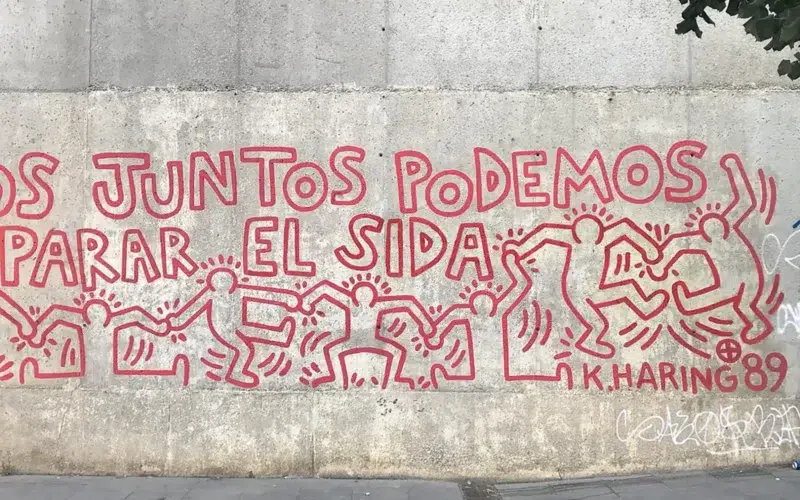 OS JUNTOS PODEMOS
PARAR EL SIDA
K.HARING 89